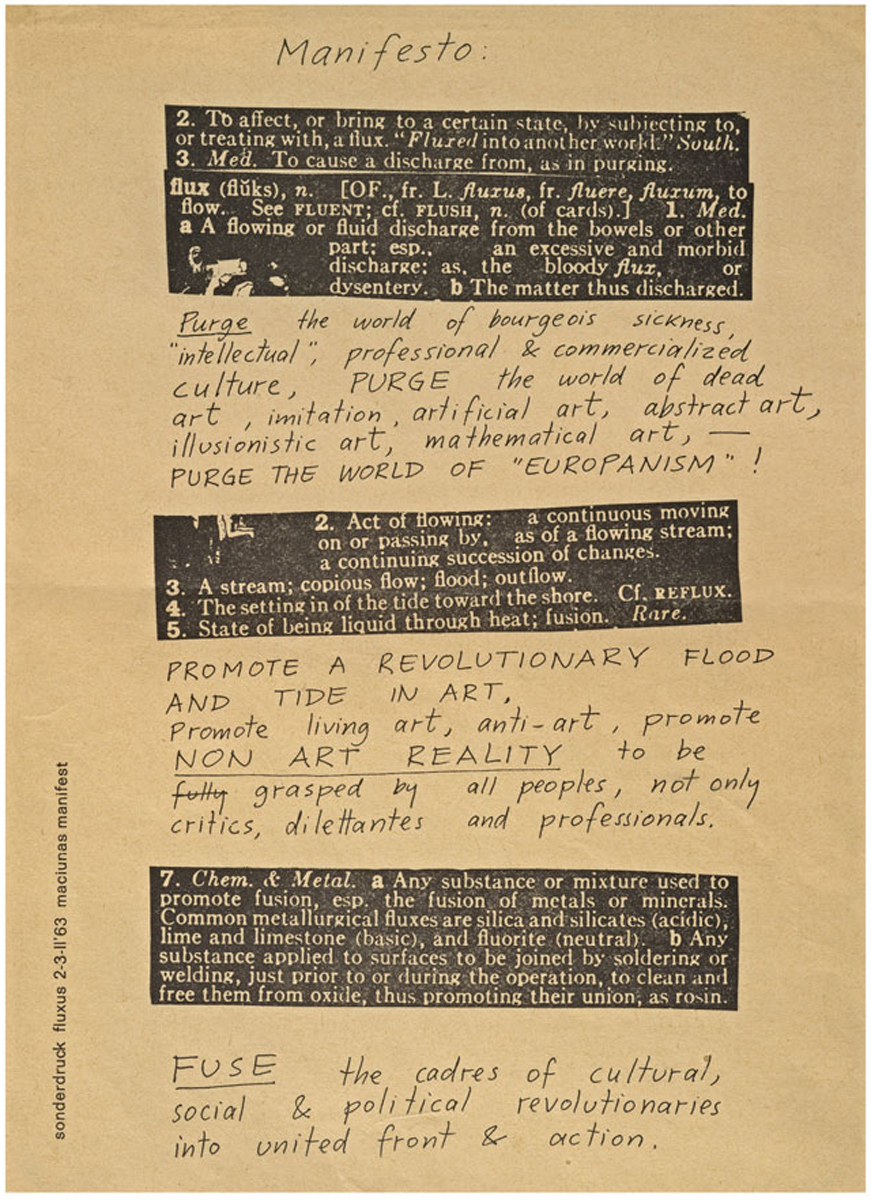 Manifesto:
2. To affect, or bring to a certain state, by subjecting to,
or treating with, a flux. "Fluxed into another world." South.
3. Med. To cause a discharge from, as in purging.
flux (flŭks), n. [OF., fr. L. fluxus, fr. fluere, fluxum, to
flow. See FLUENT; cf. FLUSH, n. (of cards).] 1. Med.
a A flowing or fluid discharge from the bowels or other
part; esp., an excessive and morbid
discharge; as, the bloody flux, or
dysentery. b The matter thus discharged.
Purge the world of bourgeois sickness,
"intellectual", professional & commercialized
culture, PURGE the world of dead
art, imitation, artificial art, abstract art,
illusionistic art, mathematical art, —
PURGE THE WORLD OF "EUROPANISM"!
2. Act of flowing: a continuous moving
on or passing by, as of a flowing stream;
a continuing succession of changes.
3. A stream; copious flow; flood; outflow.
4. The setting in of the tide toward the shore. Cf. REFLUX.
5. State of being liquid through heat; fusion. Rare.
PROMOTE A REVOLUTIONARY FLOOD
AND TIDE IN ART,
Promote living art, anti-art, promote
NON ART REALITY to be
fully grasped by all peoples, not only
critics, dilettantes and professionals.
7. Chem. & Metal. a Any substance or mixture used to
promote fusion, esp. the fusion of metals or minerals.
Common metallurgical fluxes are silica and silicates (acidic),
lime and limestone (basic), and fluorite (neutral). b Any
substance applied to surfaces to be joined by soldering or
welding, just prior to or during the operation, to clean and
free them from oxide, thus promoting their union, as rosin.
FUSE the cadres of cultural,
social & political revolutionaries
into united front & action.
sonderdruck fluxus 2-3-II'63 maciunas manifest